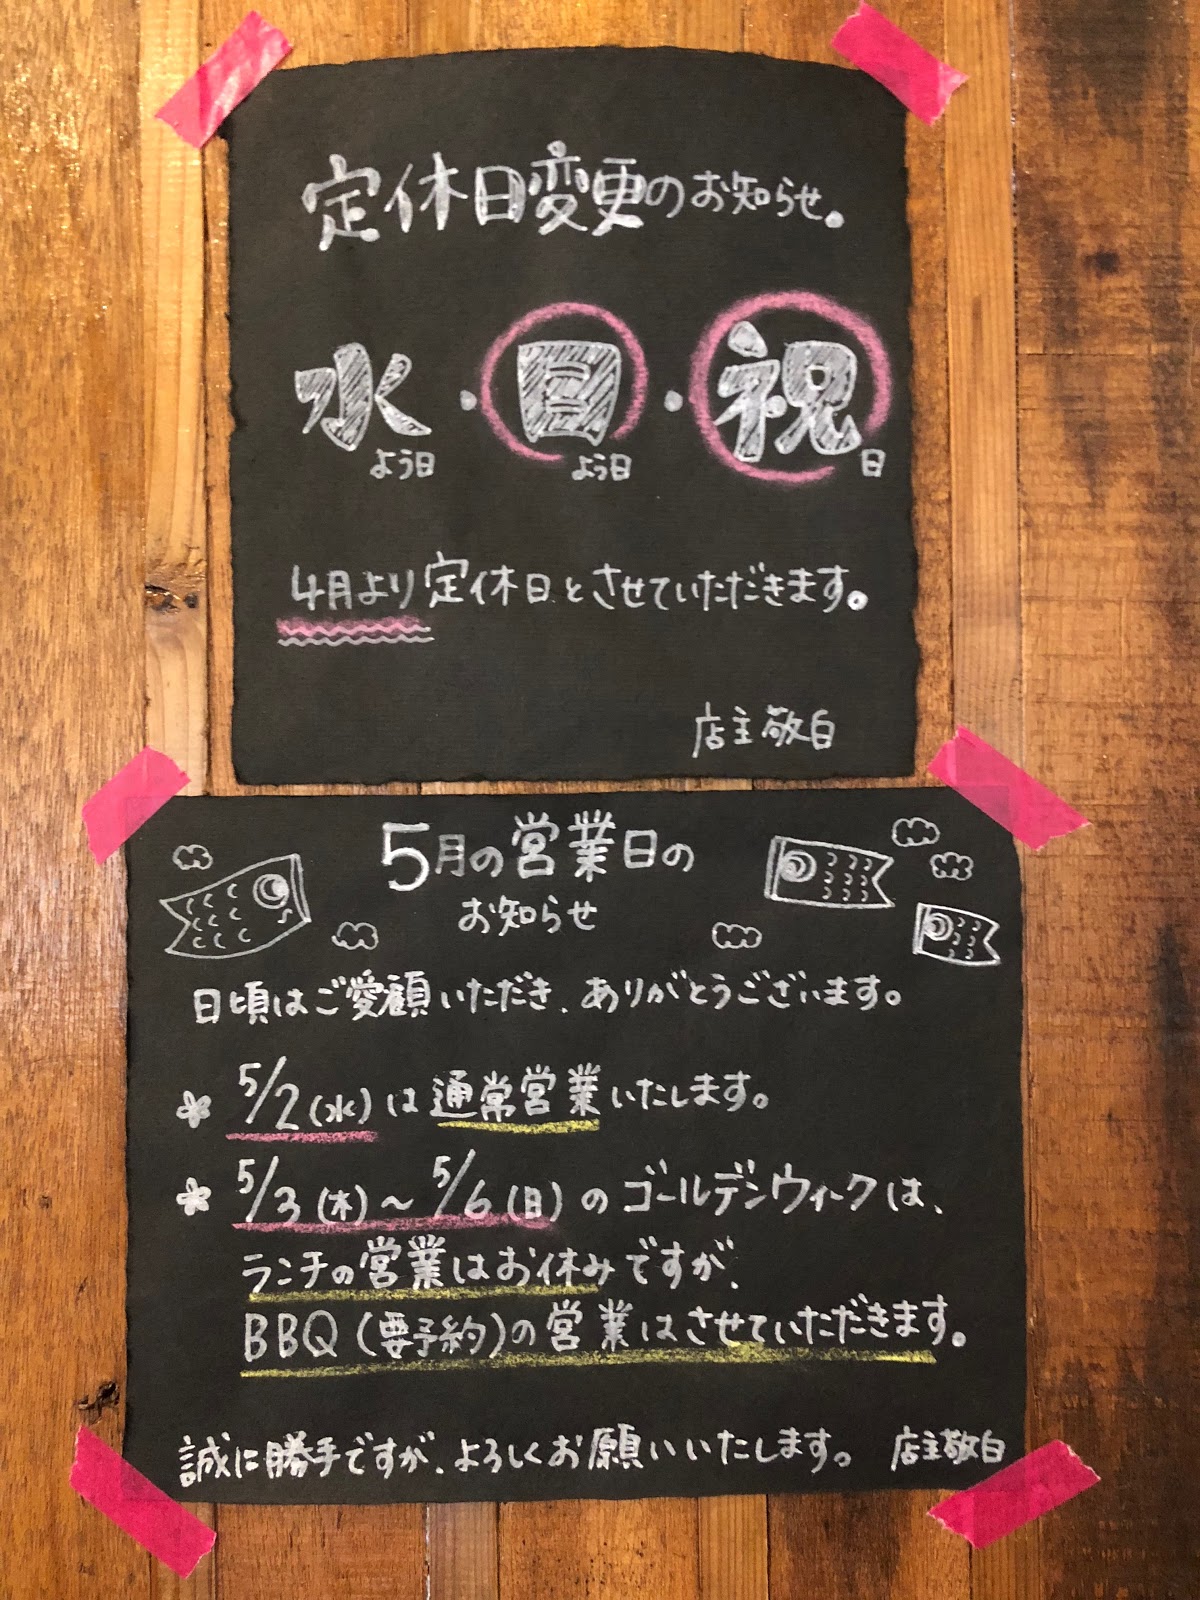 定休日変更のお知らせ。
水よう日・日よう日・祝日
4月より定休日とさせていただきます。
店主敬白
5月の営業日の
お知らせ
日頃はご愛顧いただき、ありがとうございます。
5/2(水)は通常営業いたします。
5/3(木)~5/6(日)のゴールデンウィークは、
ランチの営業はお休みですが、
BBQ(要予約)の営業はさせていただきます。
誠に勝手ですが、よろしくお願いいたします。 店主敬白